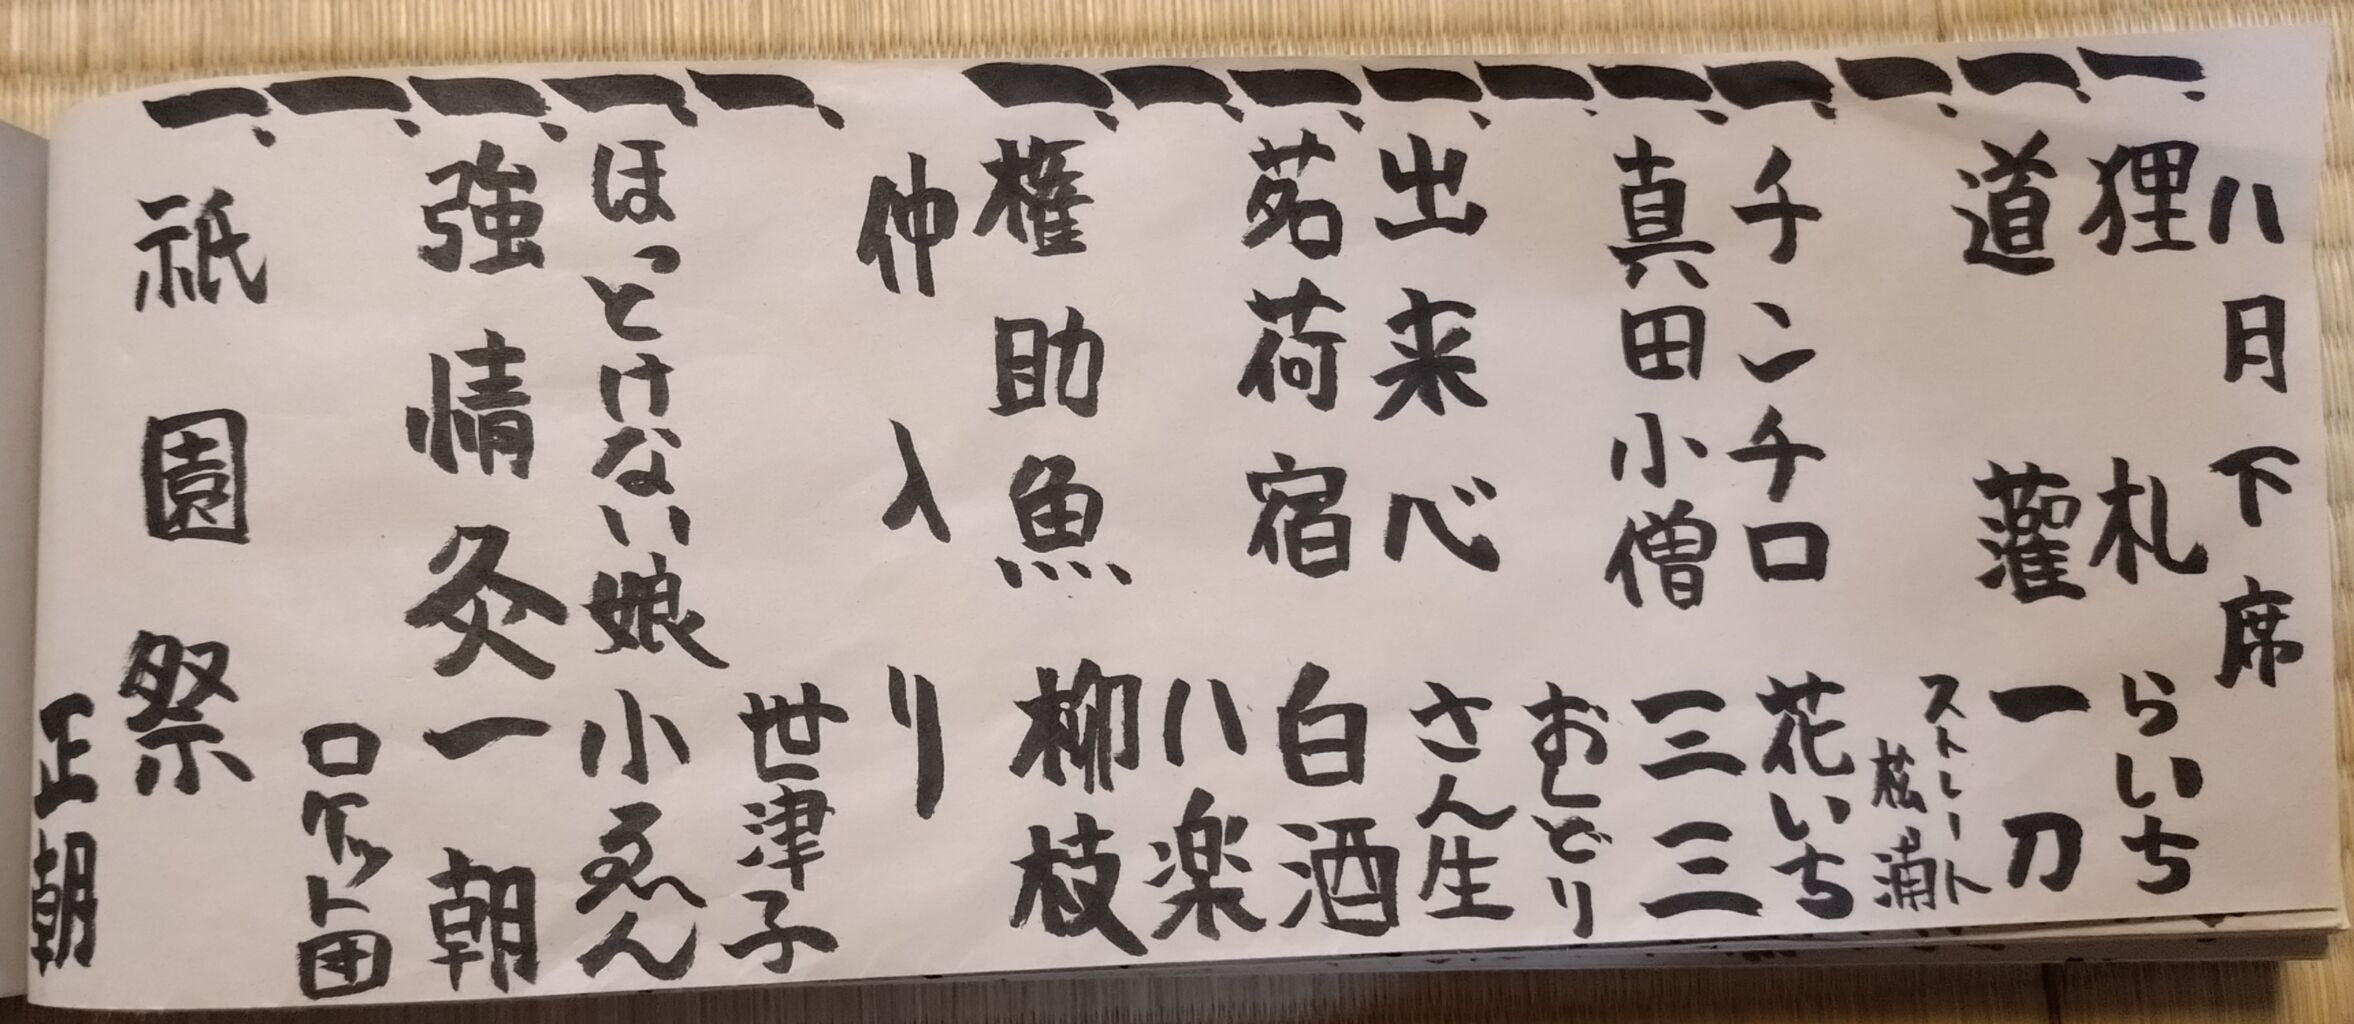 八月下席
一、狸札 らいち
一、道灌 一刀
一、ストレート松浦
一、チンチロ 花いち
一、真田小僧 三三
一、おしどり
一、出来心 さん生
一、茗荷宿 白酒
一、八楽
一、権助魚 柳枝
仲入り
一、世津子
一、ほっとけない娘 小ゑん
一、強情灸 一朝
一、ロケット団
一、祇園祭 正朝